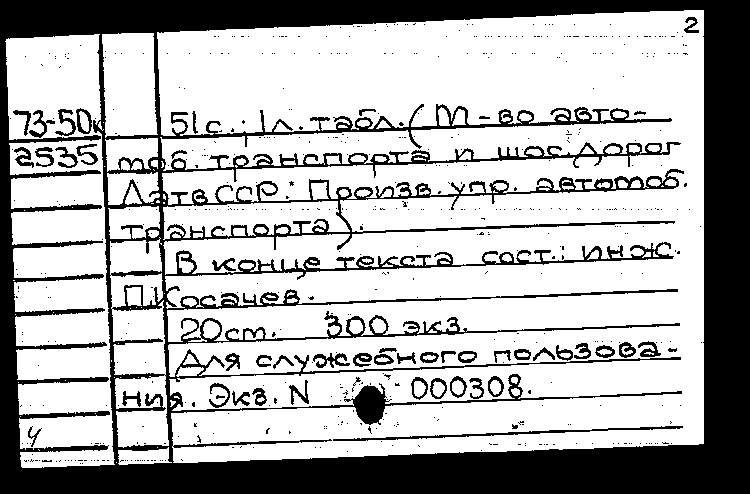 2
73-50к 51с.; 1л. табл. (М-во авто-
2535 моб. транспорта и шос. дорог
ЛатвССР: Произв. упр. автомоб.
транспорта).
В конце текста сост.: инж.
П.Косачев.
20см. 300 экз.
Для служебного пользова-
ния. Экз. N 000308.
4